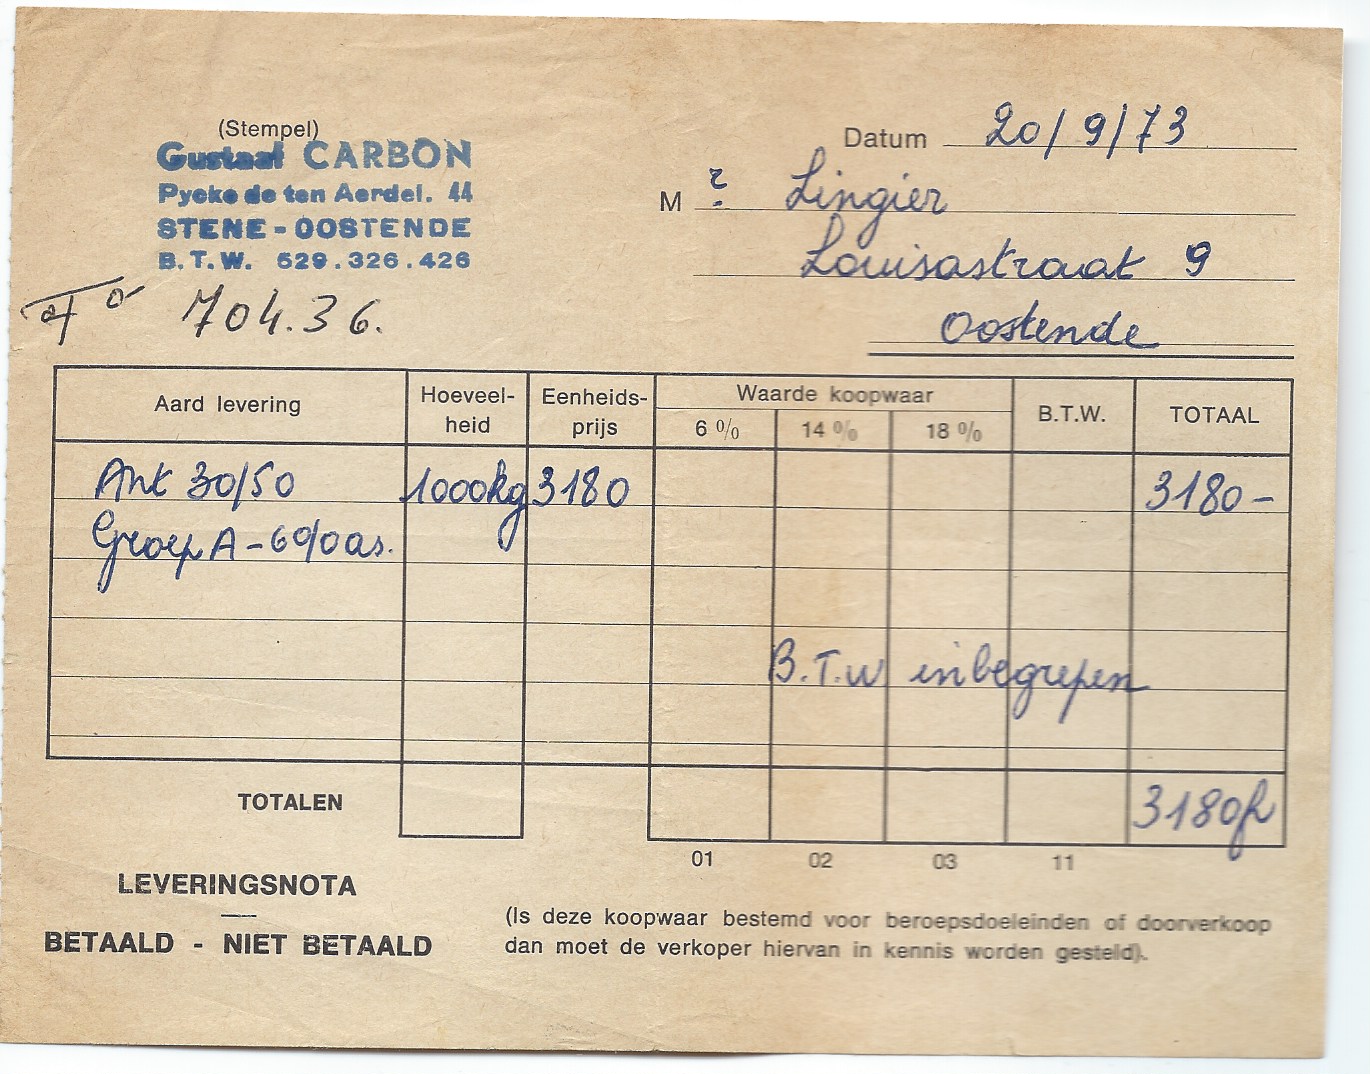 (Stempel)
Gustaaf CARBON
Pycke de ten Aerdel. 44
STENE - OOSTENDE
B.T.W. 529.326.426
704.36.
Datum 20/9/73
M r Lingier
Louisastraat 9
Oostende
Aard levering Hoeveel-heid Eenheids-prijs Waarde koopwaar B.T.W. TOTAAL
6 % 14 % 18 %
Ant 30/50 1000kg 3180 3180 -
Groep A - 6% as.
B.T.W inbegrepen
TOTALEN 3180f
01 02 03 11
LEVERINGSNOTA
BETAALD - NIET BETAALD
(Is deze koopwaar bestemd voor beroepsdoeleinden of doorverkoop
dan moet de verkoper hiervan in kennis worden gesteld).